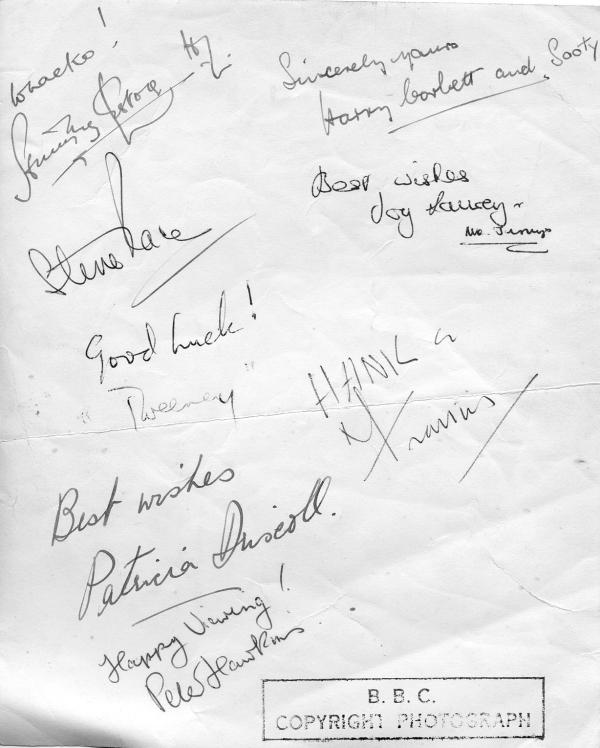 Whacko!
Jimmy
Sincerely yours
Harry Corbett and Sooty
Best wishes
Joy Harvey
Mr. Turnip
Steve Race
Good luck!
"Tweeney"
HANK
Francis
Best wishes
Patricia Driscoll.
Happy Viewing!
Peter Hawkins
B. B. C.
COPYRIGHT PHOTOGRAPH